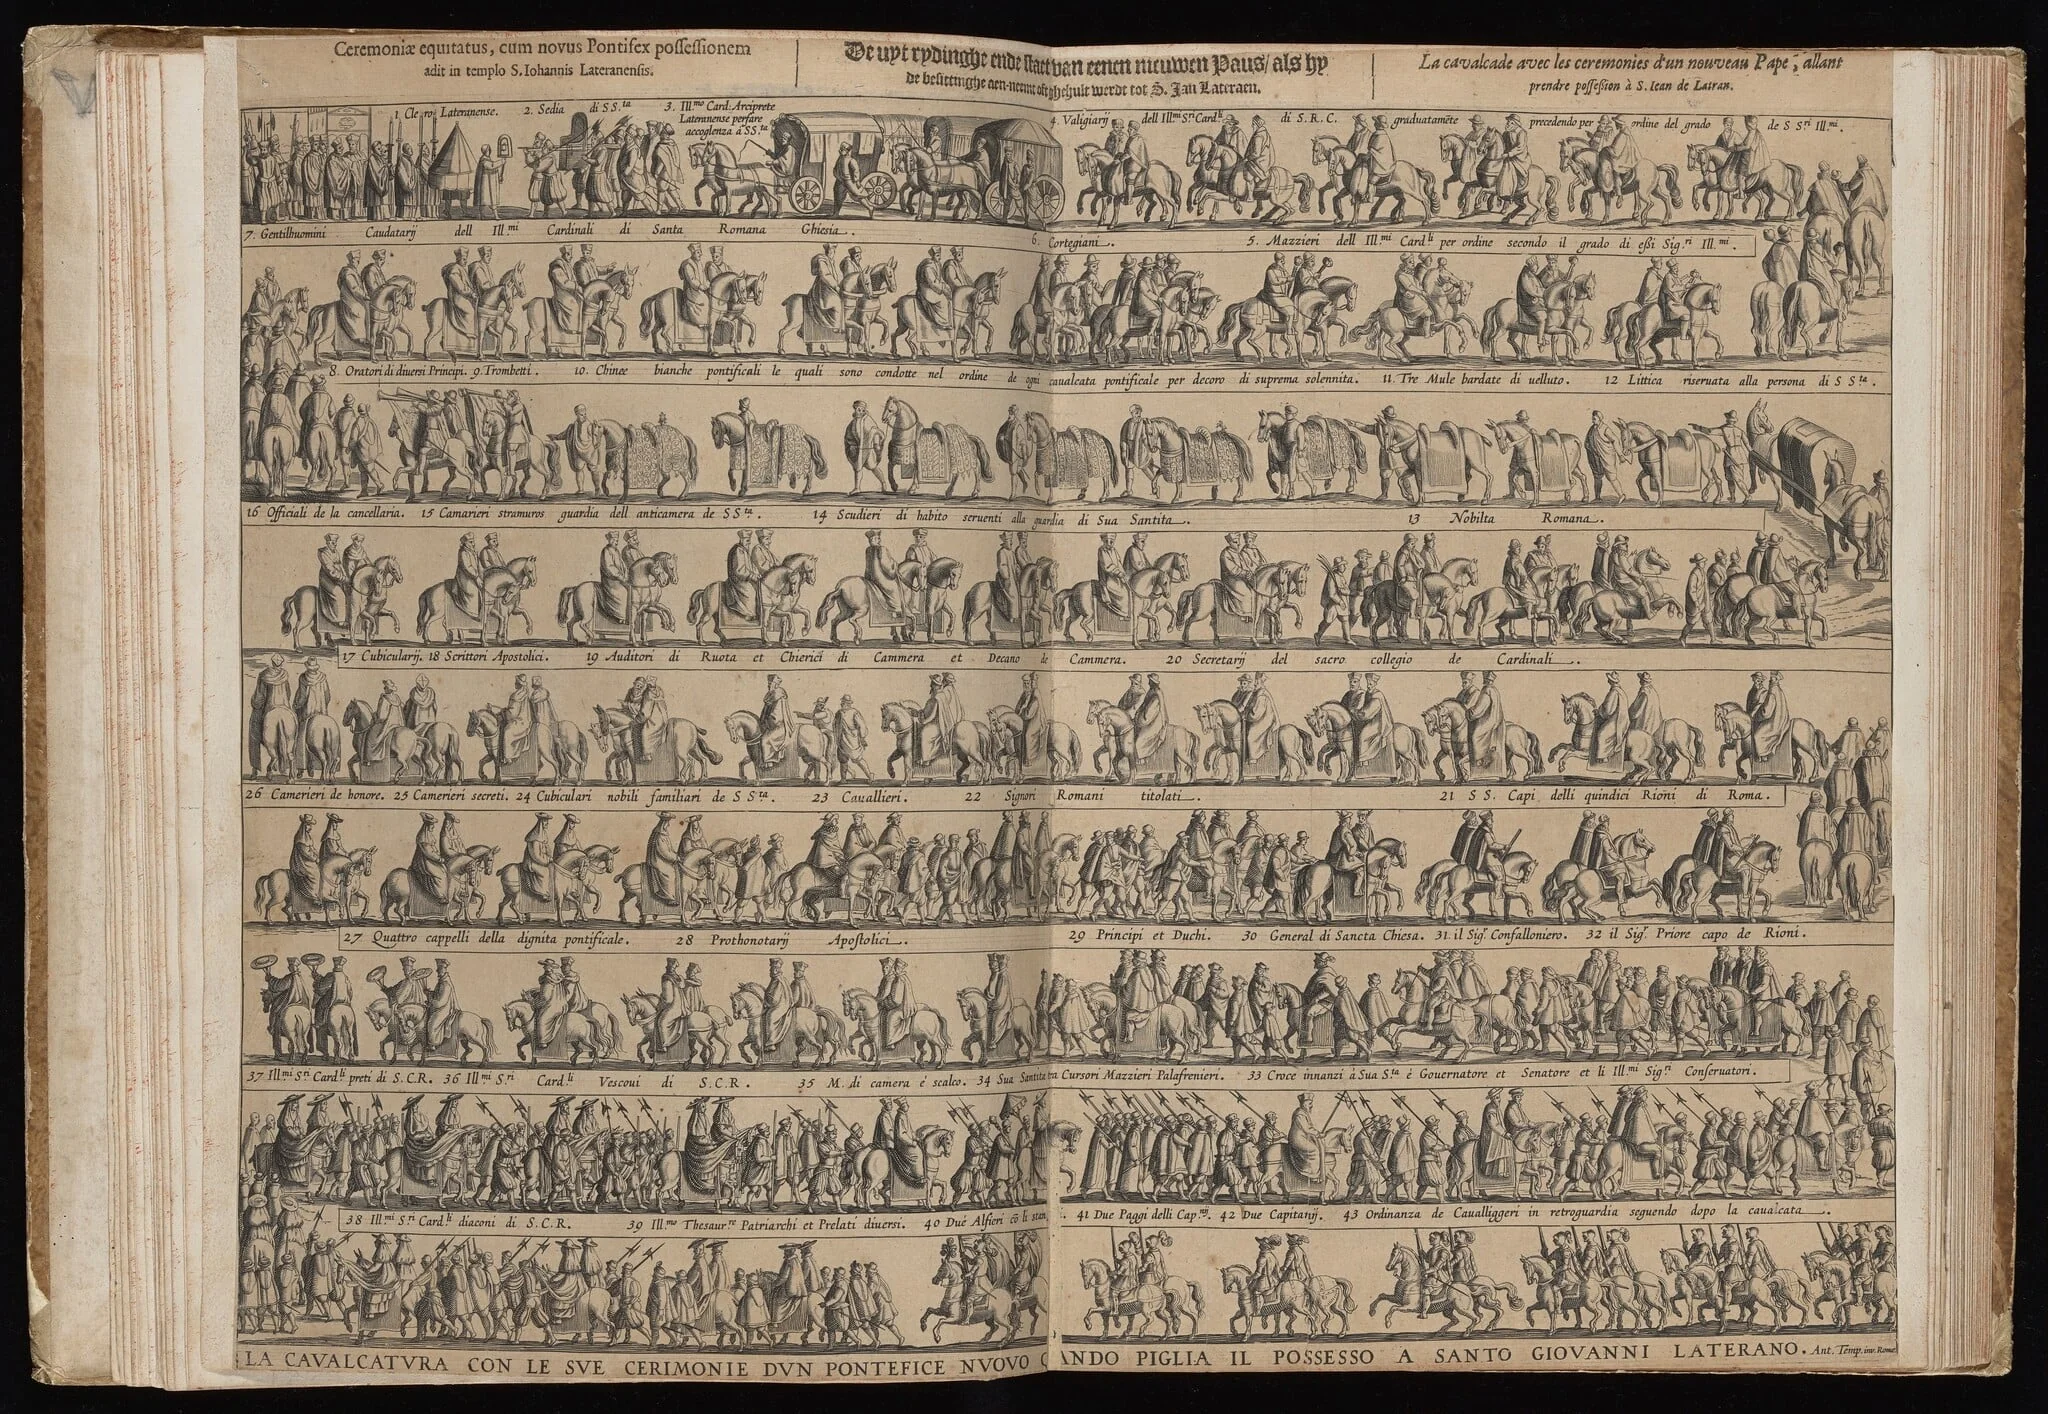 Ceremoniæ equitatus, cum novus Pontifex possessionem
adit in templo S. Iohannis Lateranensis.
De uyt rydinghe ende staet van eenen nieuwen Paus/ als hy
de besittinghe aen-neemt oft ghehult werdt tot S. Jan Lateraen.
La cavalcade avec les ceremonies d'un nouveau Pape, allant
prendre possession à S. Iean de Latran.
1 Clero Lateranense. 2. Sedia di SS.ta 3. Ill.mo Card: Arciprete
Lateranense per fare
accoglenza à SS.ta
4. Valigiarij dell Ill.mi S.ri Card.li di S.R.C. graduatamẽte precedendo per ordine del grado de S S.ri Ill.mi.
7. Gentilhuomini Caudatarij dell Ill.mi Cardinali di Santa Romana Ghiesia.
6. Cortegiani. 5. Mazzieri dell Ill.mi Card.li per ordine secondo il grado di essi Sig.ri Ill.mi.
8. Oratori di diuersi Principi. 9. Trombetti. 10. Chinee bianche pontificali le quali sono condotte nel ordine de ogni caualcata pontificale per decoro di suprema solennita. 11. Tre Mule bardate di uelluto. 12 Littica riseruata alla persona di S S.ta.
16 Officiali de la cancellaria. 15 Camarieri stramuros guardia dell anticamera de S S.ta. 14 Scudieri di habito seruenti alla guardia di Sua Santita. 13 Nobilta Romana.
17 Cubicularij. 18 Scrittori Apostolici. 19 Auditori di Ruota et Chierici di Cammera et Decano de Cammera. 20 Secretarij del sacro collegio de Cardinali.
26 Camerieri de honore. 25 Camerieri secreti. 24 Cubiculari nobili familiari de S S.ta. 23 Cauallieri. 22 Signori Romani titolati. 21 S S. Capi delli quindici Rioni di Roma.
27 Quattro cappelli della dignita pontificale. 28 Prothonotarij Apostolici. 29 Principi et Duchi. 30 General di Sancta Chiesa. 31. il Sig.r Confalloniero. 32 il Sig.r Priore capo de Rioni.
37 Ill.mi S.ri Card.li preti di S.C.R. 36 Ill.mi S.ri Card.li Vescoui di S.C.R. 35 M. di camera é scalco. 34 Sua Santita tra Cursori Mazzieri Palafrenieri. 33 Croce innanzi à Sua S.ta é Gouernatore et Senatore et li Ill.mi Sig.ri Conseruatori.
38 Ill.mi S.ri Card.li diaconi di S.C.R. 39 Ill.mo Thesaur.re Patriarchi et Prelati diuersi. 40 Due Alfieri cõ li stan. 41 Due Paggi delli Cap.nij. 42 Due Capitanij. 43 Ordinanza de Caualliggeri in retroguardia seguendo dopo la caualcata.
LA CAVALCATVRA CON LE SVE CERIMONIE DVN PONTEFICE NVOVO ANDO PIGLIA IL POSSESSO A SANTO GIOVANNI LATERANO. Ant. Temp. inv. Rome